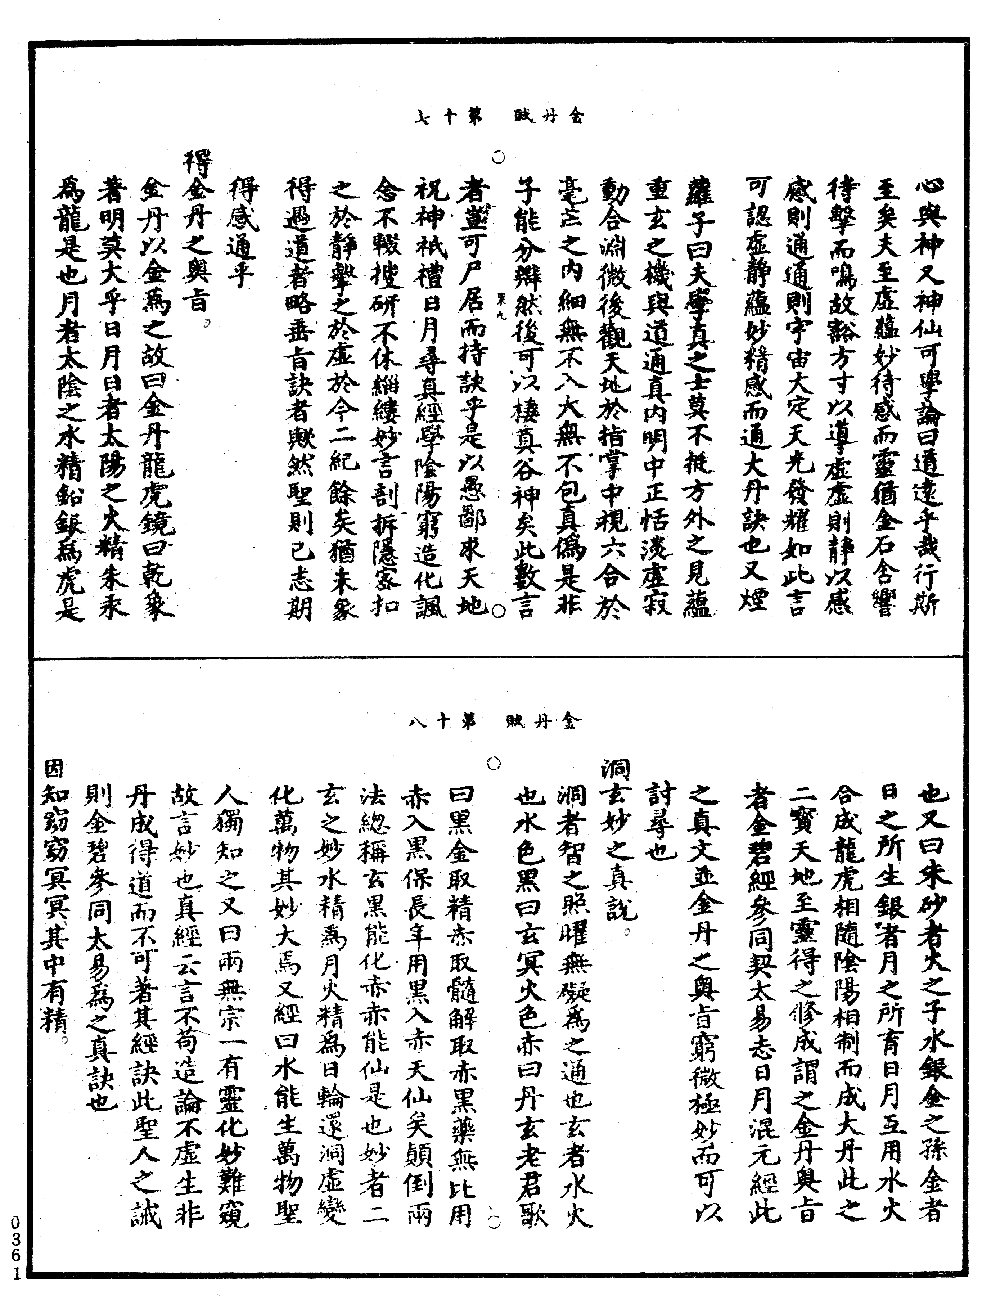 金丹賦　第十七
心與神又神仙可學論曰道遠乎哉行斯
至矣夫至虛蘊妙待感而靈猶金石含響
待擊而鳴故豁方寸以導虛虛則靜以感
感則通通則宇宙大定天光發耀如此言
可認虛静蘊妙精感而通大丹訣也又煙
蘿子曰夫學真之士莫不挺方外之見蘊
重玄之機與道通真内明中正恬淡虛寂
動合淵微後觀天地於指掌中視六合於
毫芒之内細無不入大無不包真僞是非
子能分辯然後可以棲真谷神矣此數言
者豈可尸居而持訣乎是以愚鄙求天地
祝神祇禮日月尋真經學陰陽窮造化諷
念不輟搜研不休緇縷妙言剖拆隱密扣
之於靜擊之於虛於今二紀餘矣猶未象
得過道者略垂旨訣者歟然聖則已志期
得感通乎
得金丹之與旨。
金丹以金爲之故曰金丹龍虎鏡曰乾象
著明莫大乎日月日者太陽之火精朱汞
爲龍是也月者太陰之水精鉛銀爲虎是
金丹賦　第十八
也又曰朱砂者火之子水銀金之孫金者
日之所生銀者月之所育日月互用水火
合成龍虎相隨陰陽相制而成大丹此之
二寶天地至靈得之修成謂之金丹與旨
者金碧經參同契太易志日月混元經此
之真文並金丹之與旨窮微極妙而可以
討尋也
洞玄妙之真說。
洞者智之照曜無礙爲之通也玄者水火
也水色黑曰玄冥火色赤曰丹玄老君歌
曰黑金取精赤取髓解取赤黑藥無比用
赤入黑保長年用黑入赤天仙矣顛倒兩
法緫稱玄黑能化赤赤能仙是也妙者二
玄之妙水精爲月火精爲日輪還洞虛變
化萬物其妙大焉又經曰水能生萬物聖
人獨知之又曰兩無宗一有靈化妙難窺
故言妙也真經云言不苟造論不虛生非
丹成得道而不可著其經訣此聖人之誠
則金碧參同太易爲之真訣也
因知窈窈冥冥其中有精。
0361